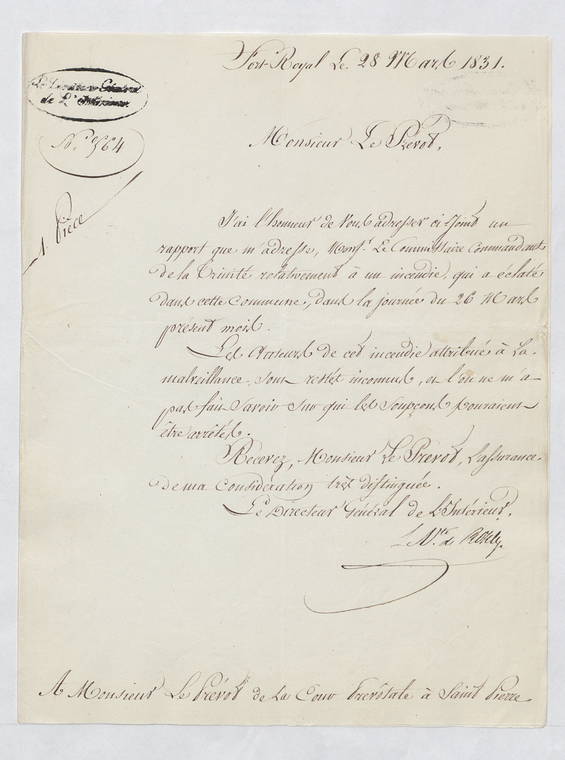 Fort-Royal Le 28 Mars 1831.
Le Directeur Général
de L'Intérieur.
N° 564
1. Pièce
Monsieur Le Prévôt,
J'ai l'honneur de vous adresser ci-joint un
rapport que m'adresse, Mons.r Le Commissaire Commandant
de la Trinité relativement à un incendie, qui a éclaté
dans cette Commune, dans la journée du 26 Mars
présent mois.
Les Auteurs de cet incendie attribué à la
malveillance, sont restés inconnus, et l'on ne m'a
pas fait savoir sur qui les soupçons pouraient
être arrêtés.
Recevez, Monsieur Le Prévôt, l'assurance
de ma considération très distinguée.
Le Directeur Général de L'Intérieur.
Le M.is de
A Monsieur Le Prévôt de La Cour Prévôtale à Saint Pierre